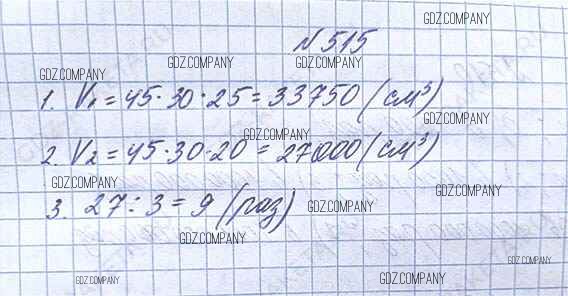 GDZ.COMPANY
№ 515
GDZ.COMPANY GDZ.COMPANY
GDZ.COMPANY
1. V₁ = 45 · 30 · 25 = 33750 (см³)
GDZ.COMPANY
GDZ.COMPANY
2. V₂ = 45 · 30 · 20 = 27000 (см³)
GDZ.COMPANY
GDZ.COMPANY
3. 27 : 3 = 9 (раз)
GDZ.COMPANY
GDZ.COMPANY
GDZ.COMPANY
GDZ.COMPANY GDZ.COMPANY